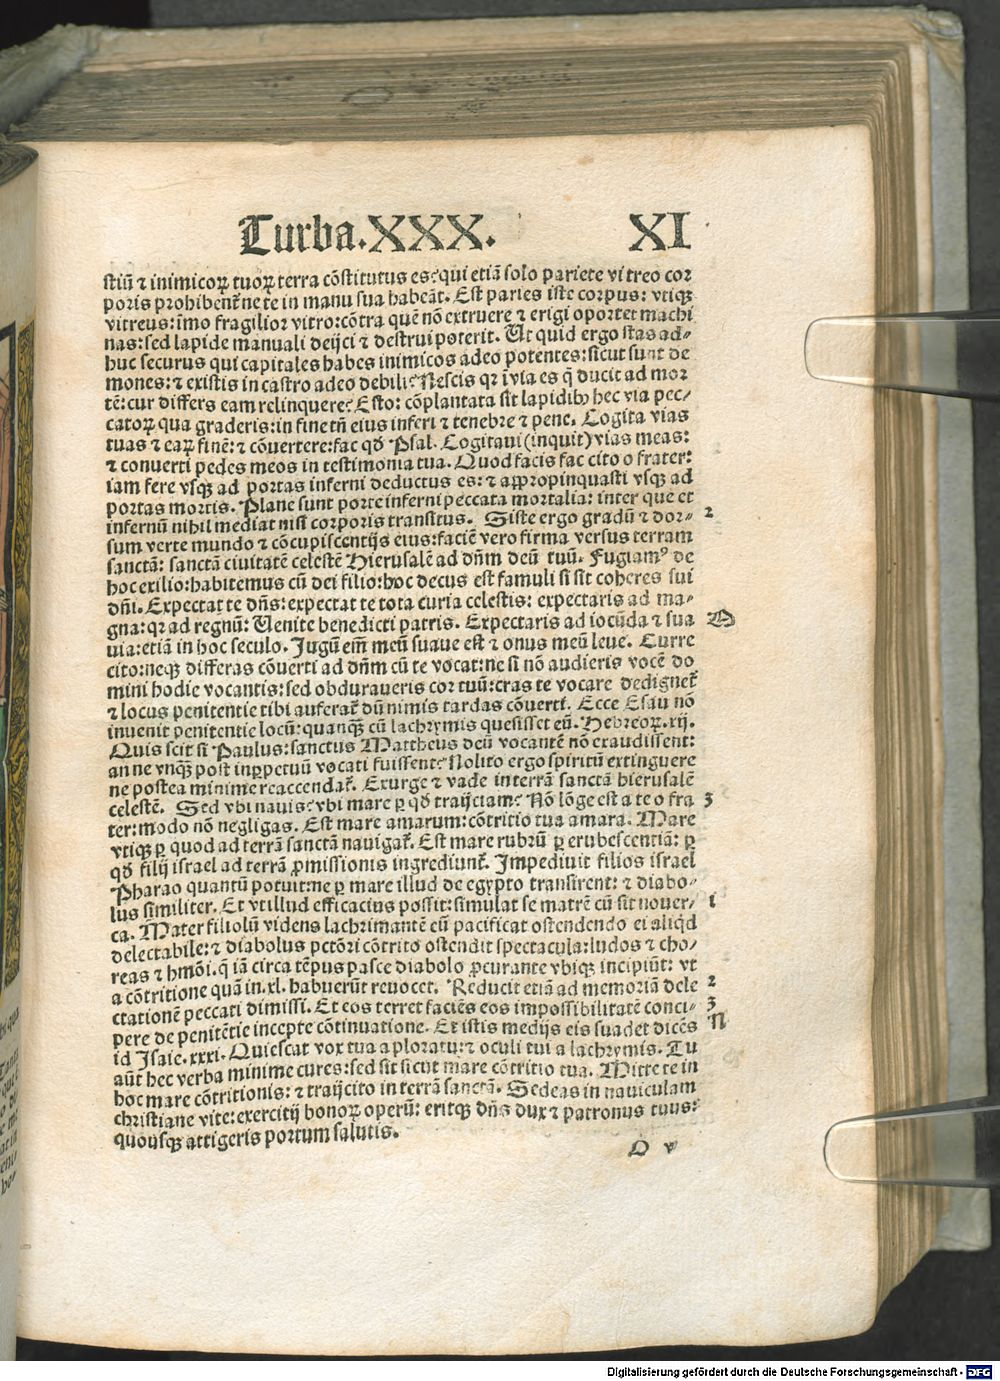 Turba.XXX. XI
stiū ⁊ inimicoꝝ tuoꝝ terra cōstitutus es: qui etiā solo pariete vitreo cor
poris prohibent̄ ne te in manu sua habeāt. Est paries iste corpus: vtiqꝫ
vitreus: imo fragilior vitro: cōtra quē nō extruere ⁊ erigi oportet machi
nas: sed lapide manuali deijci ⁊ destrui poterit. Ut quid ergo stas ad-
huc securus qui capitales habes inimicos adeo potentes: sicut sunt de
mones: ⁊ existis in castro adeo debili? Nescis qꝛ ī via es q̄ ducit ad mor
tē: cur differs eam relinquere? Esto: cōplantata sit lapidibꝰ hec via pec-
catoꝝ qua graderis: in fine tñ eius inferi ⁊ tenebre ⁊ pene. Cogita vias
tuas ⁊ eaꝝ finē: ⁊ cōuertere: fac qđ Psal. Cogitaui (inquit) vias meas:
⁊ conuerti pedes meos in testimonia tua. Quod facis fac cito o frater:
iam fere vsqꝫ ad portas inferni deductus es: ⁊ appropinquasti vsqꝫ ad
portas mortis. Plane sunt porte inferni peccata mortalia: inter que et
infernū nihil mediat nisi corporis transitus. Siste ergo gradū ⁊ dor- 2
sum verte mundo ⁊ cōcupiscentijs eius: faciē vero firma versus terram
sanctā: sanctā ciuitatē celestē Hierusalē ad dñm deū tuū. Fugiamꝰ de
hoc exilio: habitemus cū dei filio: hoc decus est famuli si sit coheres sui
dñi. Expectat te dñs: expectat te tota curia celestis: expectaris ad ma-
gna: qꝛ ad regnū: Uenite benedicti patris. Expectaris ad iocūda ⁊ sua D
uia: etiā in hoc seculo. Jugū em̄ meū suaue est ⁊ onus meū leue. Curre
cito: neqꝫ differas cōuerti ad dñm cū te vocat: ne si nō audieris vocē do
mini hodie vocantis: sed obduraueris cor tuū: cras te vocare dedignet̄
⁊ locus penitentie tibi auferat̄ dū nimis tardas cōuerti. Ecce Esau nō
inuenit penitentie locū: quanqꝫ cū lachrymis quesisset eū. Hebreoꝝ. xij.
Quis scit si Paulus: sanctus Mattheus deū vocantē nō exaudissent:
an ne vnqꝫ post inꝑpetuū vocati fuissent? Nolito ergo spiritū extinguere
ne postea minime reaccendat̄. Exurge ⁊ vade in terrā sanctā hierusalē
celestē. Sed vbi nauis? vbi mare ꝑ qđ traijciam? Nō lōge est a te o fra 3
ter: modo nō negligas. Est mare amarum: cōtritio tua amara. Mare
vtiqꝫ ꝑ quod ad terrā sanctā nauigat̄. Est mare rubrū ꝑ erubescentiā: ꝑ
qđ filij israel ad terrā ꝓmissionis ingrediunt̄. Impediuit filios israel
Pharao quantū potuit: ne ꝑ mare illud de egypto transirent: ⁊ diabo-
lus similiter. Et vt illud efficacius possit: simulat se matrē cū sit nouer- 1
ca. Mater filiolū videns lachrimantē eū pacificat ostendendo ei aliqđ
delectabile: ⁊ diabolus pctōri cōtrito ostendit spectacula: ludos ⁊ cho-
reas ⁊ hmōi. q̄ iā circa tēpus pasce diabolo ꝓcurante vbiqꝫ incipiūt: vt
a cōtritione quā in. xl. habuerūt reuocet. Reducit etiā ad memoriā dele 2
ctationē peccati dimissi. Et eos terret faciēs eos impossibilitatē conci- 3
pere de penitētie incepte cōtinuatione. Et istis medijs eis suadet dicēs N
id Jsaie. xxxi. Quiescat vox tua a ploratu: ⁊ oculi tui a lachrymis. Tu
aūt hec verba minime cures: sed sit sicut mare cōtritio tua. Mitte te in
hoc mare cōtritionis: ⁊ traijcito in terrā sanctā. Sedeas in nauiculam
christiane vite: exercitij bonoꝝ operū: eritqꝫ dñs dux ⁊ patronus tuus:
quousqꝫ attigeris portum salutis.
O v
Digitalisierung gefördert durch die Deutsche Forschungsgemeinschaft - DFG